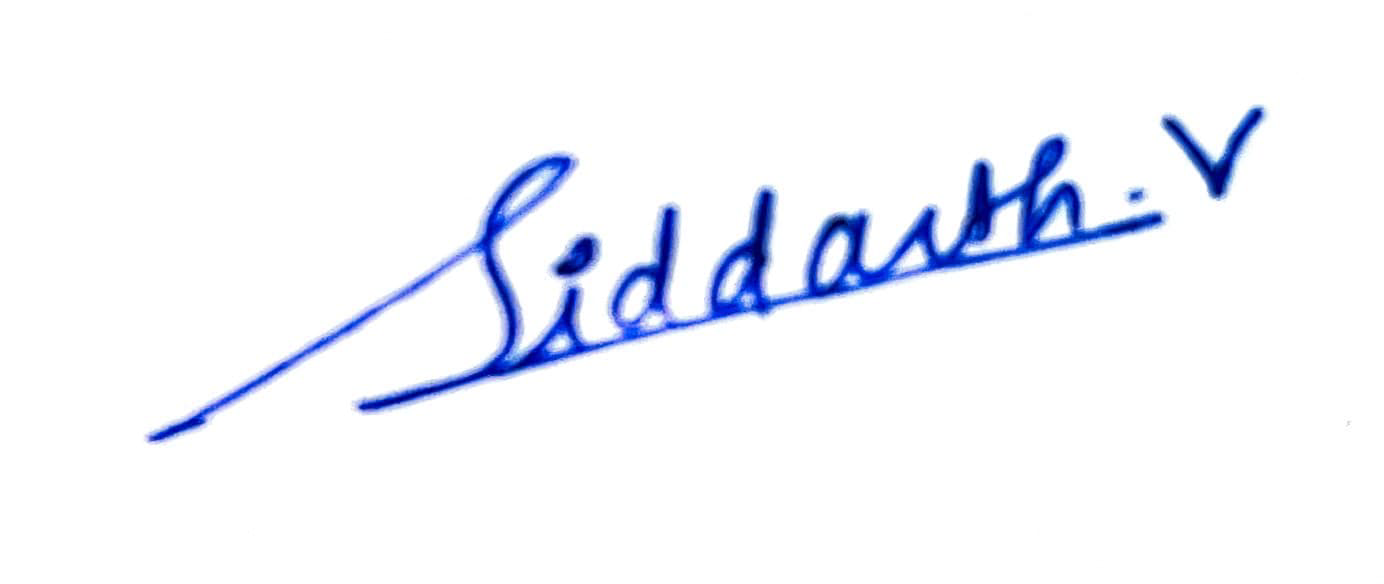 Siddarth. V